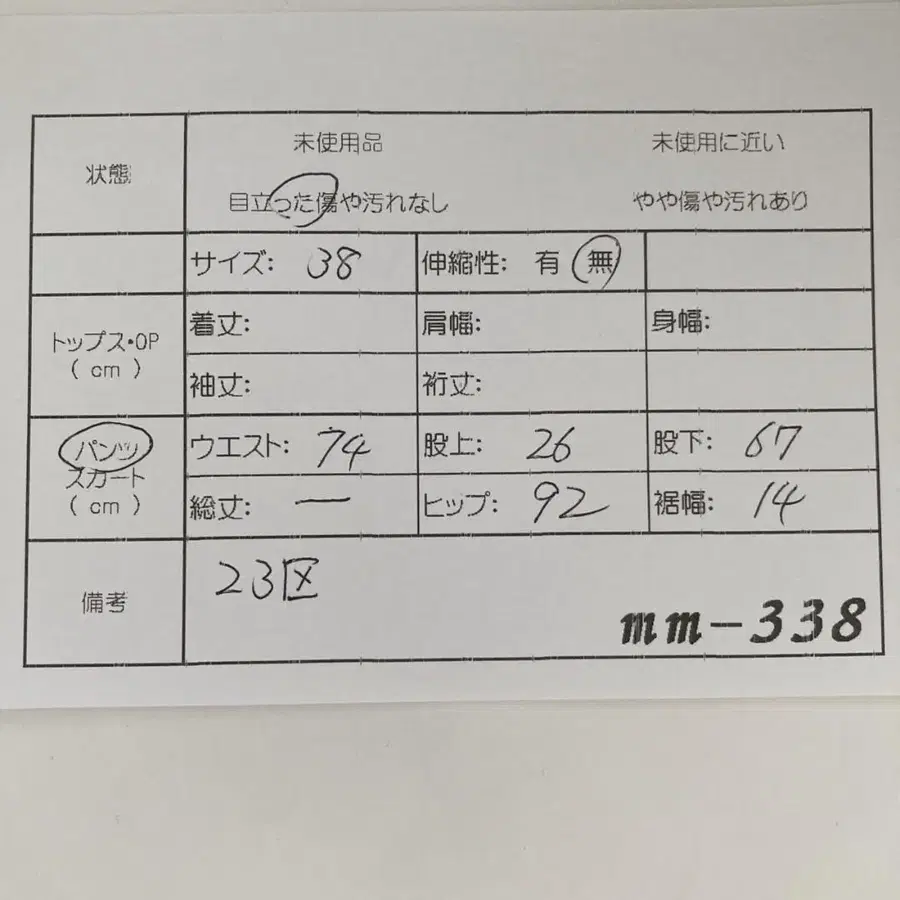 状態
未使用品 未使用に近い
目立った傷や汚れなし やや傷や汚れあり
サイズ: 38 伸縮性: 有 無
トップス・OP
( cm )
着丈: 肩幅: 身幅:
袖丈: 裄丈:
パンツ
スカート
( cm )
ウエスト: 74 股上: 26 股下: 67
総丈: ー ヒップ: 92 裾幅: 14
備考
23区
mm-338